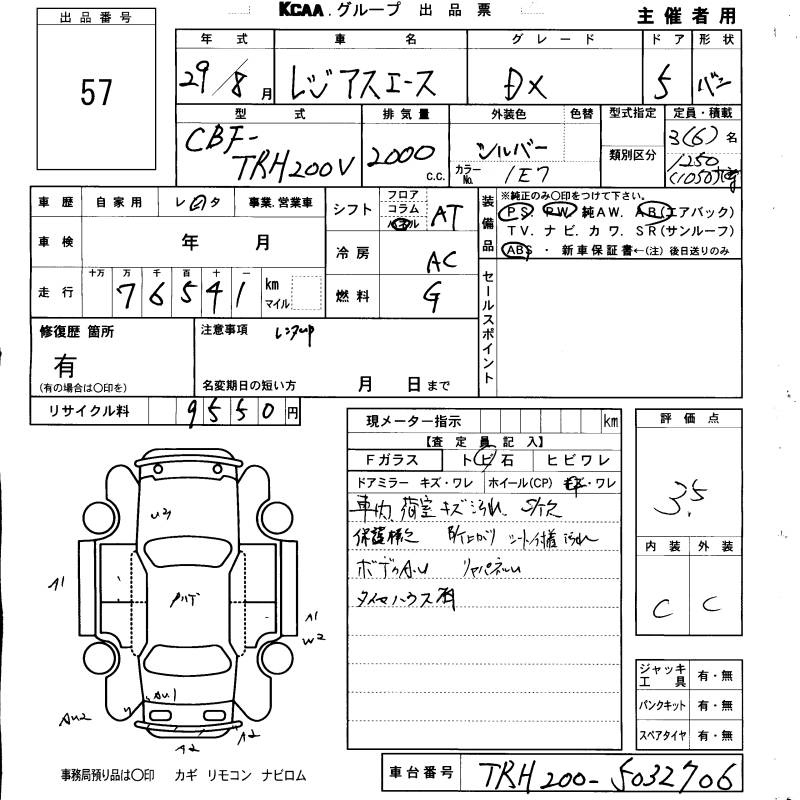 KCAA.グループ 出品票
主催者用
出品番号
57
年式 車名 グレード ドア 形状
29/8月 レジアスエース DX 5 バン
型式 排気量 外装色 色替 型式指定 定員・積載
CBF-TRH200V 2000 c.c. シルバー 類別区分 3(6)名
カラーNo. 1E7 1250(1050)
車歴 自家用 レンタ 事業.営業車
シフト フロア コラム パネル AT
装備品 ※純正のみ○印をつけて下さい。
PS. PW. 純AW. AB(エアバック)
TV. ナビ. カワ. SR(サンルーフ)
ABS ・ 新車保証書←(注)後日送りのみ
車検 年 月
冷房 AC
走行 十万 万 千 百 十 一
76541 km マイル
燃料 G
セールスポイント
修復歴 箇所
有
(有の場合は○印を)
注意事項 レンタup
名変期日の短い方 月 日まで
リサイクル料 9550円
現メーター指示 km
【査定員記入】
Fガラス トビ石 ヒビワレ
ドアミラー キズ・ワレ ホイール(CP) キズ・ワレ
車内、荷室キズ汚れ S/欠
ボデーAU リヤパネルU
タイヤハウス
評価点
3.5
内装 外装
C C
U3
A1
A1
W2
AU1
AU2
A2 A2
ジャッキ工具 有・無
パンクキット 有・無
スペアタイヤ 有・無
事務局預り品は○印 カギ リモコン ナビロム
車台番号 TRH200-5032706